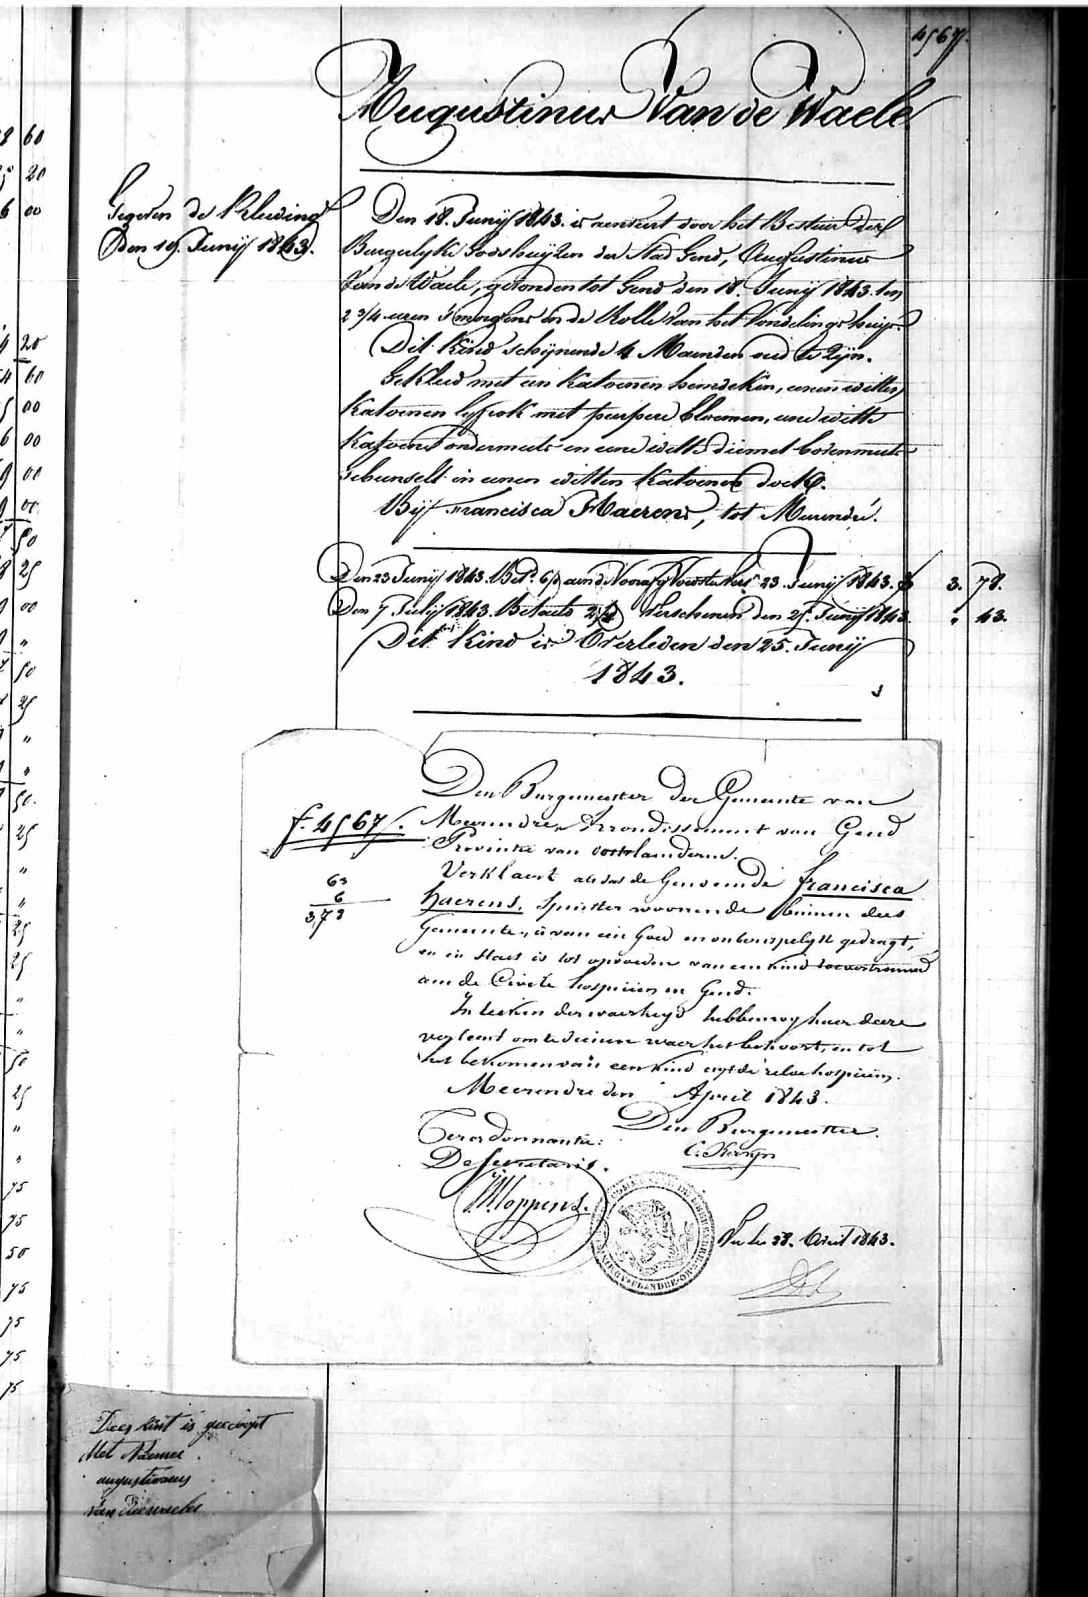 4567.
Augustinus Van de Waele
Gegeven de Kleeding
Den 19. Junij 1843.
Den 18. Junij 1843. is aenveirt door het Bestuer der
Burgelyke Godshuijzen der Stad Gend, Augustinus
Van de Waele, gevonden tot Gend den 18. Junij 1843. ten
2 3/4 uren 's morgens in de Rolle van het Vondelinge huijs.
Dit Kind schijnende 4 Maenden oud te Zijn.
Gekleed met een Katoenen hemdeken, eenen witten
Katoenen lyfrok met purpere bloemen, eene witte
Katoene ondermuts en eene witte diemet bovenmuts
Gebunselt in eenen witten Katoenen doek.
Bij Francisca Haerens, tot Meerendré.
Den 23 Junij 1843. Bet. 6/ aen de Voorsz 23. Junij 1843. f 3. 78.
Den 7 Julij 1843. Betaelt Verschenen den 25. Junij 1843. " 43.
Dit Kind is Overleden den 25. Junij
1843.
f. 4567.
63
6
378
Den Burgemeester der Gemeente van
Meerendre, Arrondissement van Gend
Provintie van Oostvlaenderen.
Verklaert als dat de Genoemde francisca
haerens. Spinster woonende binnen dees
Gemeente, is van een Goed en onberispelyk gedragt,
en in staet is tot opvoeden van een kind toevertrouwd
aen de Civiele hospicien in Gend.
In teeken der waerheyd hebben wy haer deese
verleent om te dienen waer het behoort, en tot
het bekomen van een kind uyt de zelve hospicien.
Meerendre den April 1843.
Ter ordonnantie:
Den Burgemeester.
De Secretaris.
Vu le 28. Avril 1843.
Dees kint is gedoopt
Met Naeme
augustinus
van dewaele